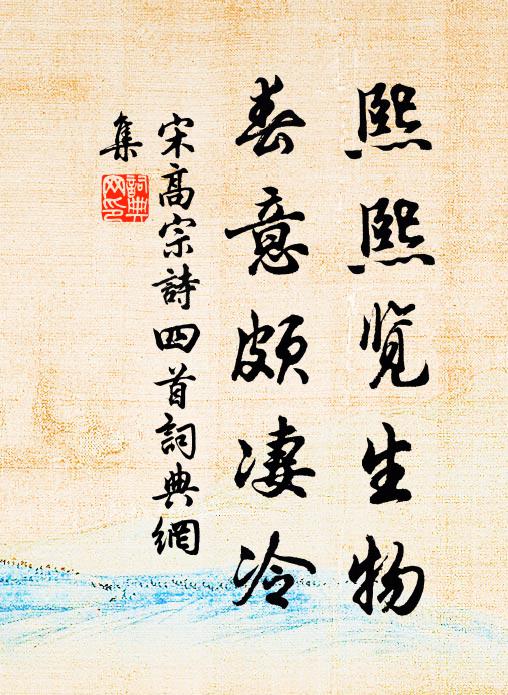 熙熙览生物
春意颇凄冷
宋高宗詩四首詞典網
集
詞典網印